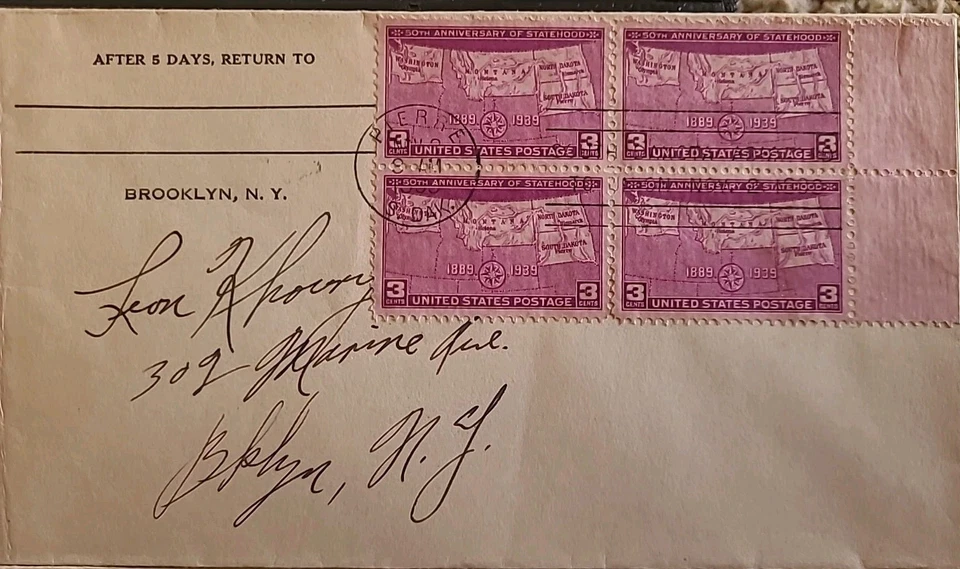 AFTER 5 DAYS, RETURN TO
BROOKLYN, N. Y.
50TH ANNIVERSARY OF STATEHOOD
WASHINGTON
Olympia
MONTANA
Helena
NORTH DAKOTA
Bismarck
SOUTH DAKOTA
Pierre
1889 1939
3 CENTS UNITED STATES POSTAGE 3 CENTS
50TH ANNIVERSARY OF STATEHOOD
WASHINGTON
Olympia
MONTANA
Helena
NORTH DAKOTA
Bismarck
SOUTH DAKOTA
Pierre
1889 1939
3 CENTS UNITED STATES POSTAGE 3 CENTS
PIERRE
8 AM
S. DAK.
50TH ANNIVERSARY OF STATEHOOD
MONTANA
Helena
NORTH DAKOTA
Bismarck
SOUTH DAKOTA
Pierre
1889 1939
3 CENTS UNITED STATES POSTAGE 3 CENTS
50TH ANNIVERSARY OF STATEHOOD
WASHINGTON
Olympia
MONTANA
Helena
NORTH DAKOTA
Bismarck
SOUTH DAKOTA
Pierre
1889 1939
3 CENTS UNITED STATES POSTAGE 3 CENTS
Leon Khoury
302 Marine Ave.
Bklyn, N.Y.